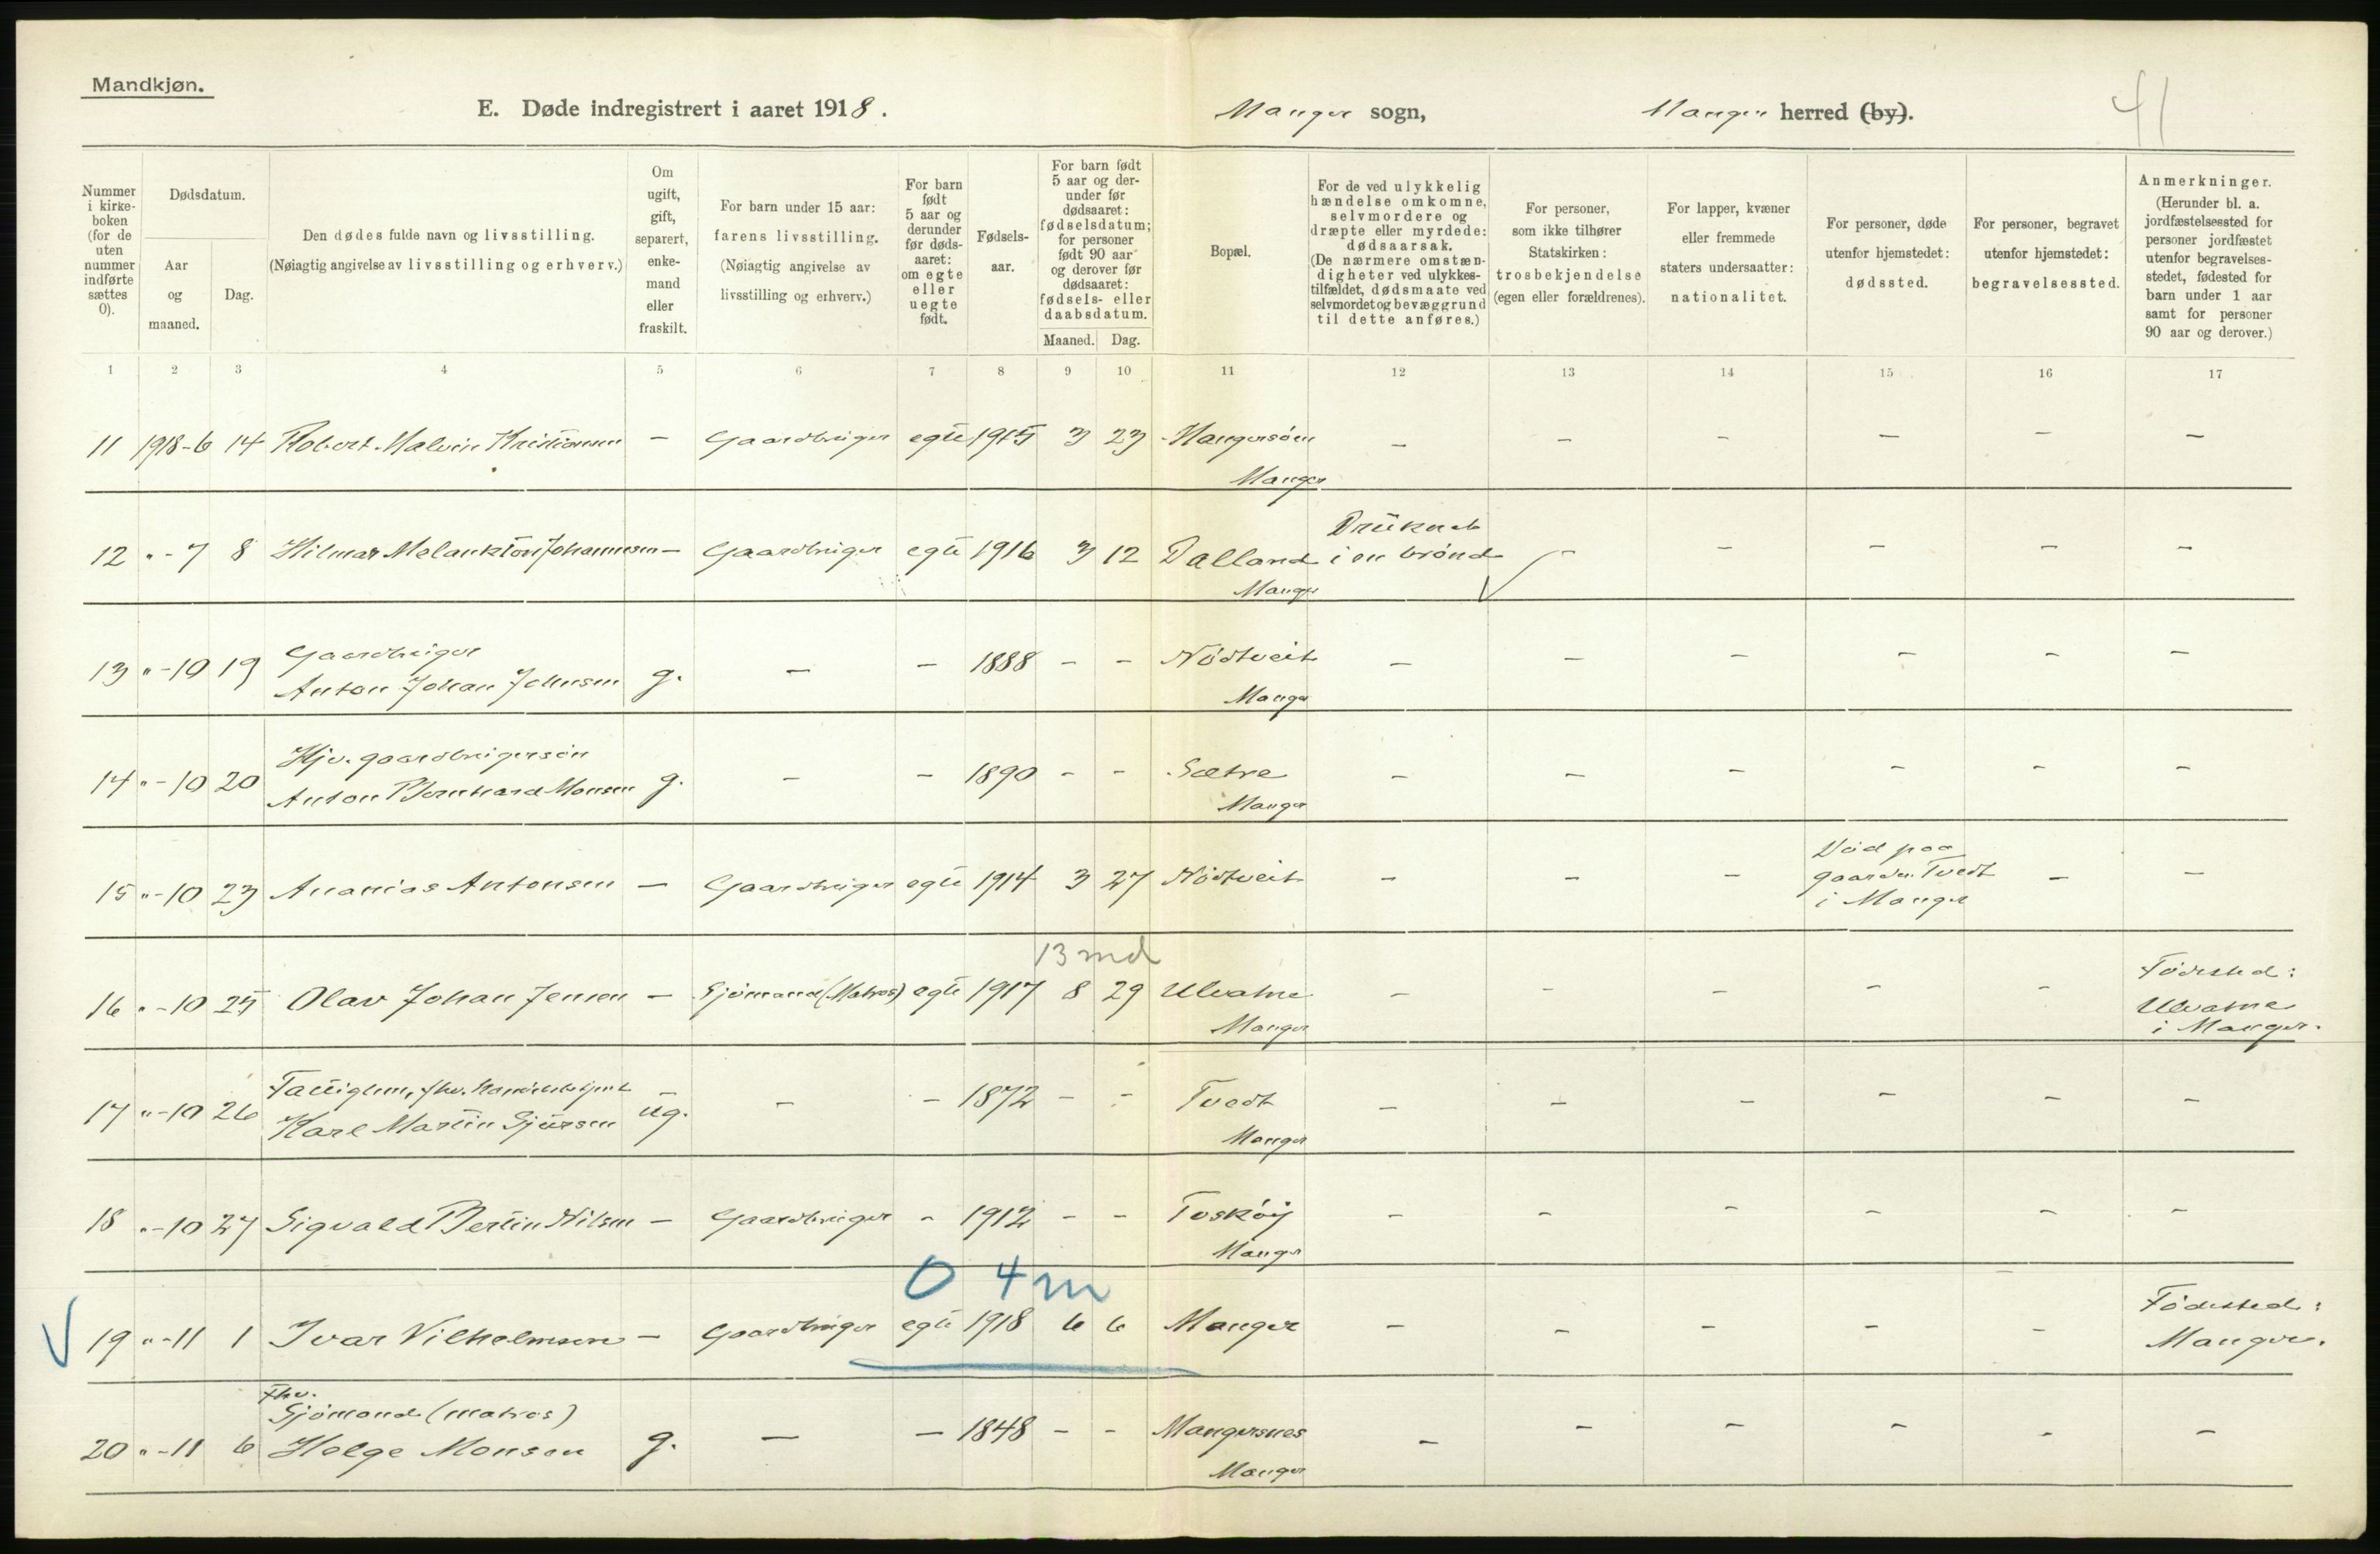 Mandkjøn.
E. Døde indregistrert i aaret 1918.
Manger sogn,
Manger herred (by).
41
Nummer i kirkeboken (for de uten nummer indførte sættes 0).
Dødsdatum.
Aar og maaned.
Dag.
Den dødes fulde navn og livsstilling.
(Nøiagtig angivelse av livsstilling og erhverv.)
Om ugift, gift, separert, enkemand eller fraskilt.
For barn under 15 aar: farens livsstilling. (Nøiagtig angivelse av livsstilling og erhverv.)
For barn født 5 aar og derunder før dødsaaret: om egte eller uegte født.
Fødselsaar.
For barn født 5 aar og derunder før dødsaaret: fødselsdatum; for personer født 90 aar og derover før dødsaaret: fødsels- eller daabsdatum.
Maaned. Dag.
Bopæl.
For de ved ulykkelig hændelse omkomne, selvmordere og dræpte eller myrdede: dødsaarsak. (De nærmere omstændigheter ved ulykkestilfældet, dødsmaate ved selvmordet og bevæggrund til dette anføres.)
For personer, som ikke tilhører Statskirken: trosbekjendelse (egen eller forældrenes).
For lapper, kvæner eller fremmede staters undersaatter: nationalitet.
For personer, døde utenfor hjemstedet: dødssted.
For personer, begravet utenfor hjemstedet: begravelsessted.
Anmerkninger. (Herunder bl. a. jordfæstelsessted for personer jordfæstet utenfor begravelsesstedet, fødested for barn under 1 aar samt for personer 90 aar og derover.)
1 2 3 4 5 6 7 8 9 10 11 12 13 14 15 16 17
11 1918-6 14 Robert Malvin Kristiansen - Gaardbruger egte 1915 3 23 - - - - - -
Manger
12 "-7 8 Hilmar Melankton Johannesen - Gaardbruger egte 1916 3 12 Dalland Druknet i en brønd - - - - -
Manger
Gaardbruger
13 "-10 19 Anton Johan Johnsen g. - - 1888 - - Nödtveit - - - - - -
Manger
Hjv. gaardbrugersön
14 "-10 20 Anton Bernhard Monsen g. - - 1890 - - Sætre - - - - - -
Manger
15 "-10 23 Ananias Antonsen - Gaardbruger egte 1914 3 27 Nödtveit - - - Död paa gaarden Tvedt i Manger - -
13 md
16 "-10 25 Olav Johan Jensen - Sjömand (Matros) egte 1917 8 29 Ulvatne - - - - - Födested: Ulvatne i Manger.
Manger
Fattiglem, fhv.
17 "-10 26 Karl Martin Sjursen ug. - - 1872 - - Tvedt - - - - - -
Manger
18 "-10 27 Sigvald Bertin Nilsen - Gaardbruger - 1912 - - Tosköy - - - - - -
Manger
0 4 m
19 "-11 1 Ivar Vilhelmsen - Gaardbruger egte 1918 6 6 Manger - - - - - Födested: Manger.
Fhv.
Sjömand (matros)
20 "-11 6 Helge Monsen g. - - 1848 - - Mangersnes - - - - - -
Manger